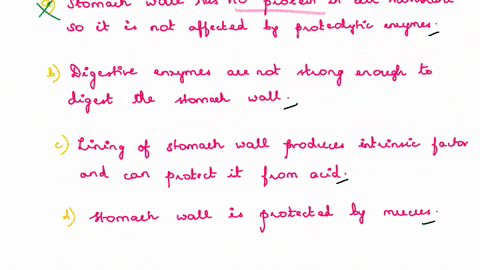 a) Stomach wall has no protein in cell membrane
so it is not affected by proteolytic enzymes.
b) Digestive enzymes are not strong enough to
digest the stomach wall.
c) Lining of stomach wall produces intrinsic factor
and can protect it from acid.
d) Stomach wall is protected by mucus.